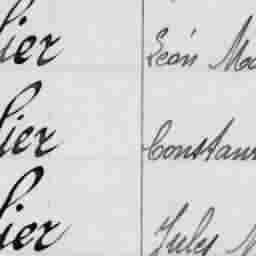 lier Léon Ma
lier Constan
lier Jules M